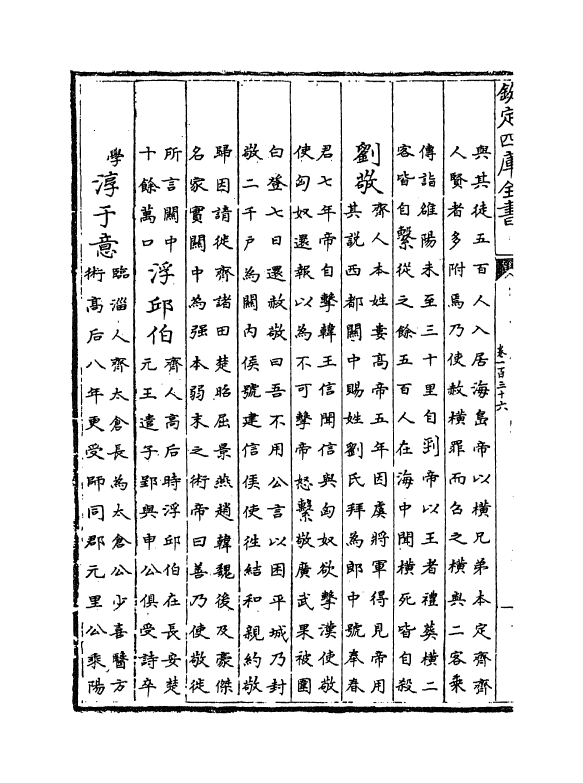 欽定四庫全書
卷一百三十六
與其徒五百人入居海島帝以橫兄弟本定齊齊
人賢者多附焉乃使赦橫罪而召之橫與二客乘
傳詣雒陽未至三十里自剄帝以王者禮葬橫二
客皆自繫從之餘五百人在海中聞橫死皆自殺
劉敬
齊人本姓婁高帝五年因虞將軍得見帝用
其說西都關中賜姓劉氏拜為郎中號奉春
君七年帝自擊韓王信聞信與匈奴欲擊漢使敬
使匈奴還報以為不可擊帝怒繫敬廣武果被圍
白登七日還赦敬曰吾不用公言以困平城乃封
敬二千戶為關內侯號建信侯使徃結和親約敬
歸因請徙齊諸田楚昭屈景燕趙韓魏後及豪傑
名家實關中為强本弱末之術帝曰善乃使敬徙
所言關中
十餘萬口
浮邱伯
齊人高后時浮邱伯在長安楚
元王遣子郢與申公俱受詩卒
學
淳于意
臨淄人齊太倉長為太倉公少喜醫方
術高后八年更受師同郡元里公乘陽